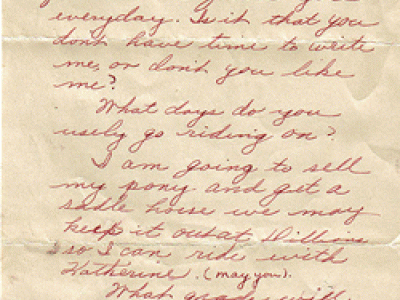 everyday. Is it that you
dont have time to write
me, or don't you like
me?
What days do you
usely go riding on?
I am going to sell
my pony and get a
sadle horse we may
keep it out at Dillions
so I can ride with
Katherine. (may you).
What grades will